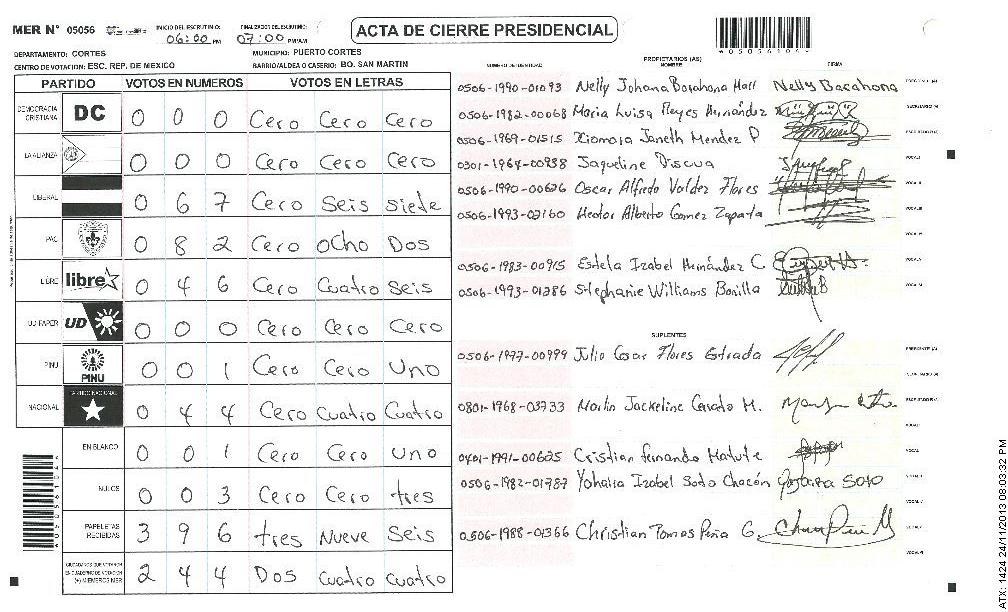 MER N° 05056
INICIO DEL ESCRUTINIO: 06:00 PM
FINALIZACION DEL ESCRUTINIO: 07:00 PM/AM
ACTA DE CIERRE PRESIDENCIAL
DEPARTAMENTO: CORTES
MUNICIPIO: PUERTO CORTES
CENTRO DE VOTACION: ESC. REP. DE MEXICO
BARRIO/ALDEA O CASERIO: BO. SAN MARTIN
PARTIDO VOTOS EN NUMEROS VOTOS EN LETRAS
DEMOCRACIA CRISTIANA DC 0 0 0 Cero Cero Cero
LA ALIANZA 0 0 0 Cero Cero Cero
LIBERAL 0 6 7 Cero Seis siete
PAC 0 8 2 Cero Ocho Dos
LIBRE libre 0 4 6 Cero Cuatro Seis
UD-FAPER UD 0 0 0 Cero Cero Cero
PINU PINU 0 0 1 Cero Cero Uno
NACIONAL PARTIDO NACIONAL 0 4 4 Cero Cuatro Cuatro
EN BLANCO 0 0 1 Cero Cero uno
NULOS 0 0 3 Cero Cero tres
PAPELETAS RECIBIDAS 3 9 6 tres Nueve Seis
CIUDADANOS QUE VOTARON EN CUADERNO DE VOTACION (+) MIEMBROS MER 2 4 4 Dos cuatro cuatro
NUMERO DE IDENTIDAD PROPIETARIOS (AS) NOMBRE FIRMA
0506-1990-01093 Nelly Johana Barahona Hall Nelly Barahona
0506-1982-00068 Maria Luisa Reyes Hernández
0506-1969-01515 Xiomara Janeth Mendez P
0301-1964-00938 Jaqueline Discua
0506-1990-00626 Oscar Alfredo Valdez Flores
0506-1993-02160 Hector Alberto Gomez Zapata
0506-1983-00915 Estela Izabel Hernández C.
0506-1993-01386 Stephanie Williams Bonilla
SUPLENTES
0506-1977-00999 Julio Cesar Flores Estrada
0801-1968-03733 Jackeline M.
0401-1991-00625 Cristian fernando Matute
0506-1982-01787 Yohalia Izabel Soto Chacón
0506-1988-01366 Christian Tomas Peña G.
ATX: 1424 24/11/2013 08:03:32 PM